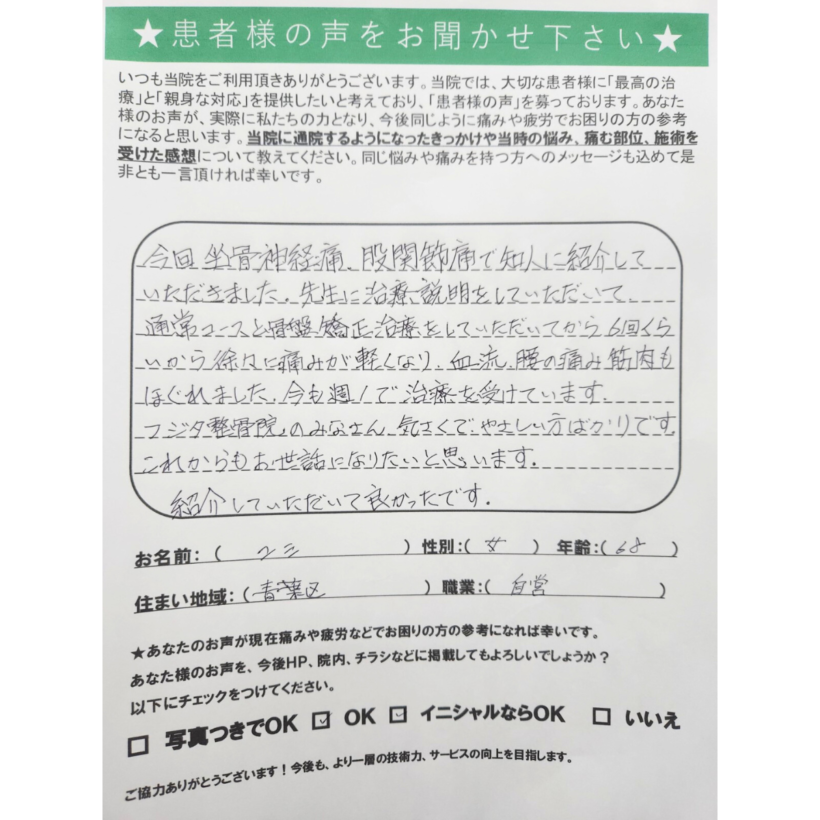 ★患者様の声をお聞かせ下さい★
いつも当院をご利用頂きありがとうございます。当院では、大切な患者様に「最高の治
療」と「親身な対応」を提供したいと考えており、「患者様の声」を募っております。あなた
様のお声が、実際に私たちの力となり、今後同じように痛みや疲労でお困りの方の参考
になると思います。当院に通院するようになったきっかけや当時の悩み、痛む部位、施術を
受けた感想について教えてください。同じ悩みや痛みを持つ方へのメッセージも込めて是
非とも一言頂ければ幸いです。
今回 坐骨神経痛、股関節痛で知人に紹介して
いただきました。先生に治療説明をしていただいて、
通常コースと骨盤矯正治療をしていただいてから6回くら
いから徐々に痛みが軽くなり、血流、腰の痛み筋肉も
ほぐれました。今も週1で治療を受けています。
フジタ整骨院のみなさん 気さくで、やさしい方ばかりです。
これからもお世話になりたいと思います。
紹介していただいて良かったです。
お名前：（ ）性別：（ 女 ）年齢：（ 68 ）
住まい地域：（ 青葉区 ）職業：（ 自営 ）
★あなたのお声が現在痛みや疲労などでお困りの方の参考になれば幸いです。
あなた様のお声を、今後HP、院内、チラシなどに掲載してもよろしいでしょうか？
以下にチェックをつけてください。
□ 写真つきでOK ☑ OK ☑ イニシャルならOK □ いいえ
ご協力ありがとうございます！今後も、より一層の技術力、サービスの向上を目指します。